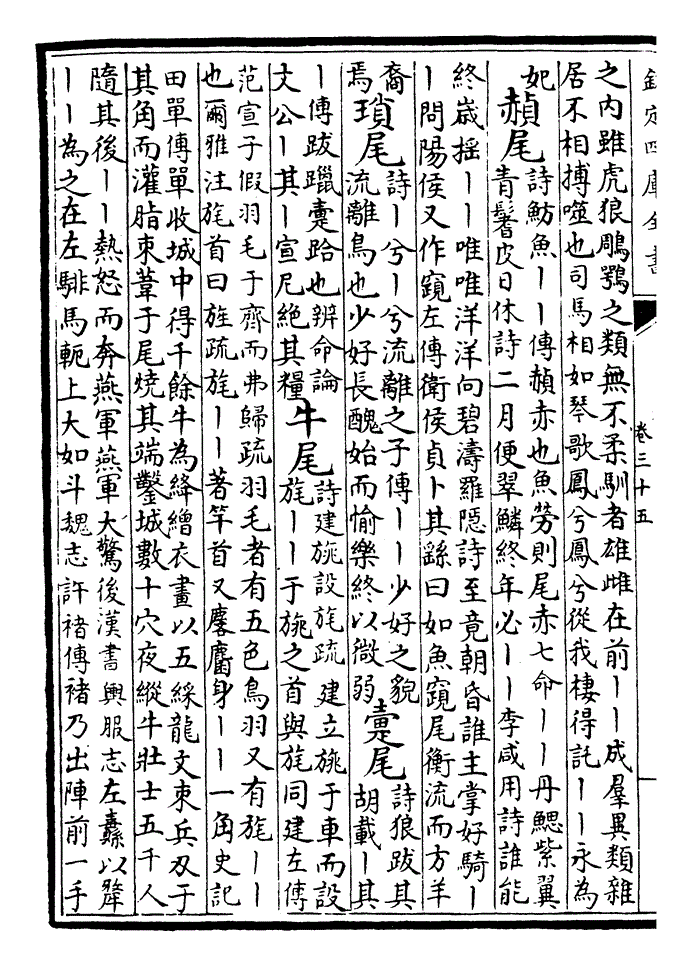 欽定四庫全書
卷三十五
之內雖虎狼鵰鶚之類無不柔馴者雄雌在前丨丨成羣異類雜
居不相搏噬也司馬相如琴歌鳳兮鳳兮從我棲得託丨丨永為
妃
赬尾
詩魴魚丨丨傳赬赤也魚勞則尾赤七命丨丨丹鰓紫翼
青鬐皮日休詩二月便翠鱗終年必丨丨李咸用詩誰能
終歲搖丨丨唯唯洋洋向碧濤羅隱詩至竟朝昏誰主掌好騎丨
丨問陽侯又作窺左傳衛侯貞卜其繇曰如魚窺尾衡流而方羊
裔
焉
瑣尾
詩丨兮丨兮流離之子傳丨丨少好之貌
流離鳥也少好長醜始而愉樂終以微弱
疐尾
詩狼跋其
胡載丨其
丨傳跋躐疐跲也辨命論
文公丨其丨宣尼絕其糧
牛尾
詩建旐設旄疏建立旐于車而設
旄丨丨于旐之首與旄同建左傳
范宣子假羽毛于齊而弗歸疏羽毛者有五色鳥羽又有旄丨丨
也爾雅注旄首曰旌疏旄丨丨著竿首又麐麕身丨丨一角史記
田單傳單收城中得千餘牛為絳繒衣畫以五綵龍文束兵刃于
其角而灌脂束葦于尾燒其端鑿城數十穴夜縱牛壯士五千人
隨其後丨丨熱怒而奔燕軍燕軍大驚後漢書輿服志左纛以犛
丨丨為之在左騑馬軛上大如斗魏志許褚傳褚乃出陣前一手